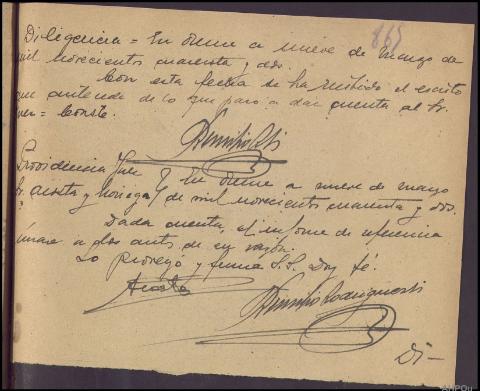 865
Diligencia = En Orense a nueve de marzo de
mil novecientos cuarenta y dos.
Con esta fecha se ha recibido el escrito
que antecede de lo que paso a dar cuenta al Sr.
Juez = Conste.
Providencia Juez En Orense a nueve de marzo
Sr. Acosta y Noriega de mil novecientos cuarenta y dos.
Dada cuenta, el informe de referencia
únase a los autos de su razón.
Lo proveyó y firma S.S. Doy fé.
Acosta
Di-
AHPOu